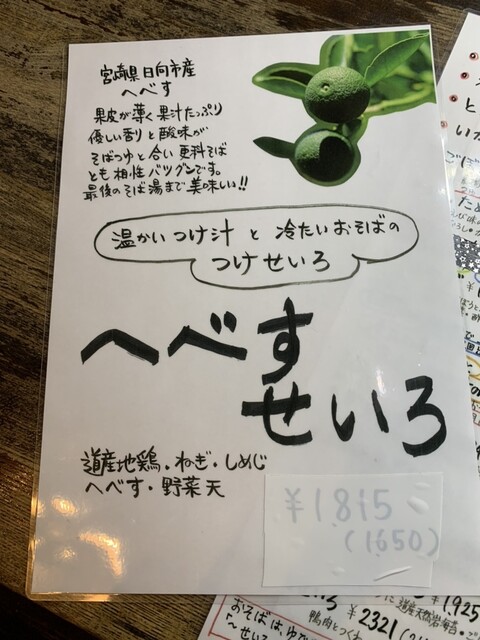 宮崎県日向市産
へべす
果皮が薄く果汁たっぷり
優しい香りと酸味が
そばつゆと合い更科そば
とも相性バツグンです。
最後のそば湯まで美味しい!!
温かいつけ汁と冷たいおそばの
つけせいろ
へべす
せいろ
道産地鶏・ねぎ・しめじ
へべす・野菜天
¥1815
(1650)
道産天然岩海苔
¥1,925
鴨肉とつくね
¥2321
おそばは、ゆで